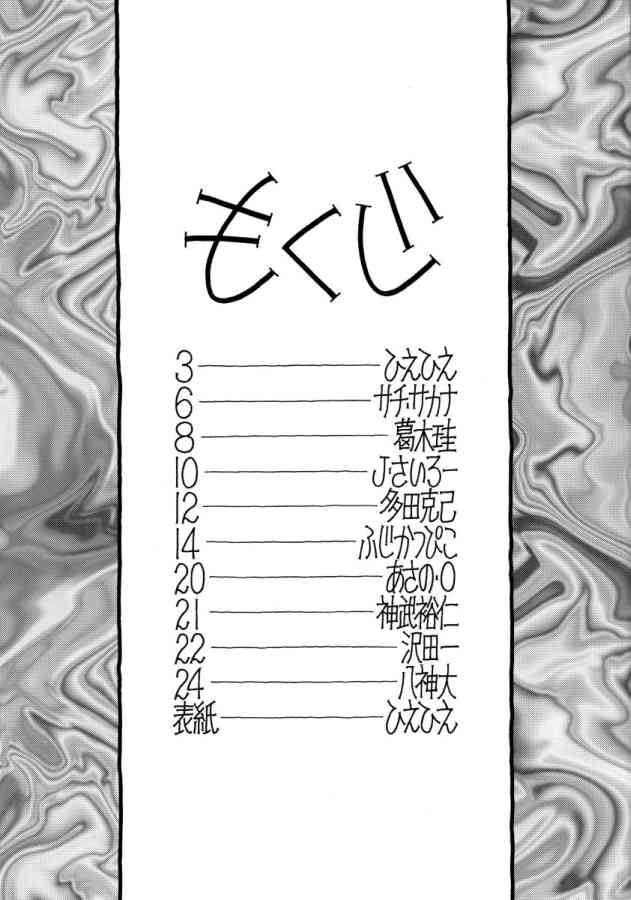 もくじ
3 ひえひえ
6 サチ・サカナ
8 葛木珪
10 J・さいろー
12 多田克己
14 ふじかつぴこ
20 あさの・O
21 神武裕仁
22 沢田一
24 八神大
表紙 ひえひえ